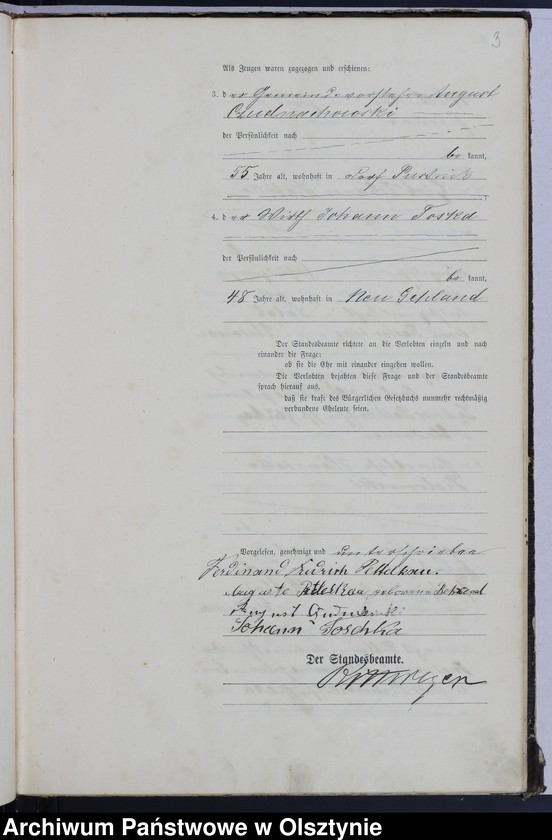 3
Als Zeugen waren zugezogen und erschienen:
3. der Gemeindevorsteher August
der Persönlichkeit nach
be kannt,
55 Jahre alt, wohnhaft in
4. der Wirth Johann Toska
der Persönlichkeit nach
be kannt,
48 Jahre alt, wohnhaft in Neu
Der Standesbeamte richtete an die Verlobten einzeln und nach
einander die Frage:
ob sie die Ehe mit einander eingehen wollen.
Die Verlobten bejahten diese Frage und der Standesbeamte
sprach hierauf aus,
daß sie kraft des Bürgerlichen Gesetzbuchs nunmehr rechtmäßig
verbundene Eheleute seien.
Vorgelesen, genehmigt und unterschrieben
Ferdinand
Auguste geborene
August
Johann Soschka
Der Standesbeamte.
Archiwum Państwowe w Olsztynie